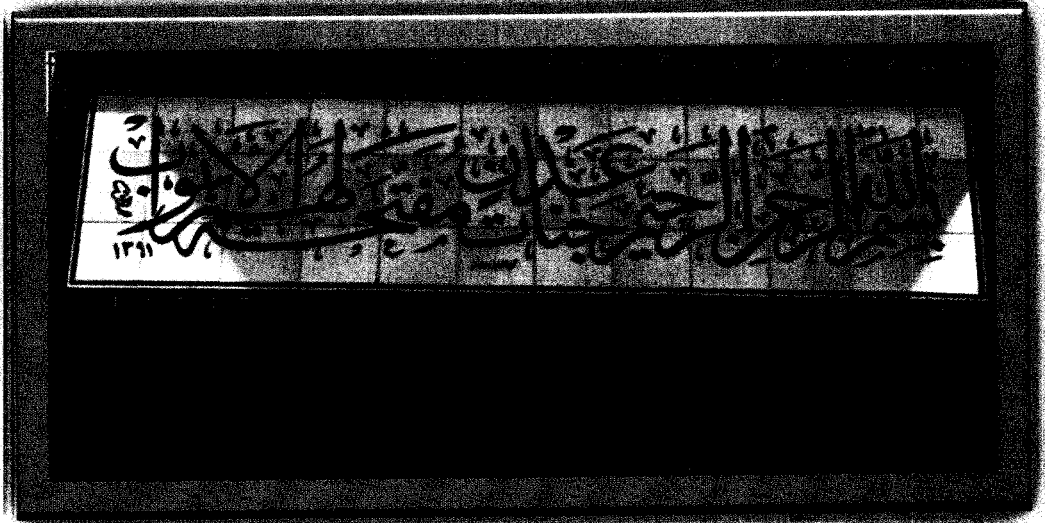 بسم الله الرحمن الرحيم جنات عدن مفتحة لهم الأبواب
١٣٩١